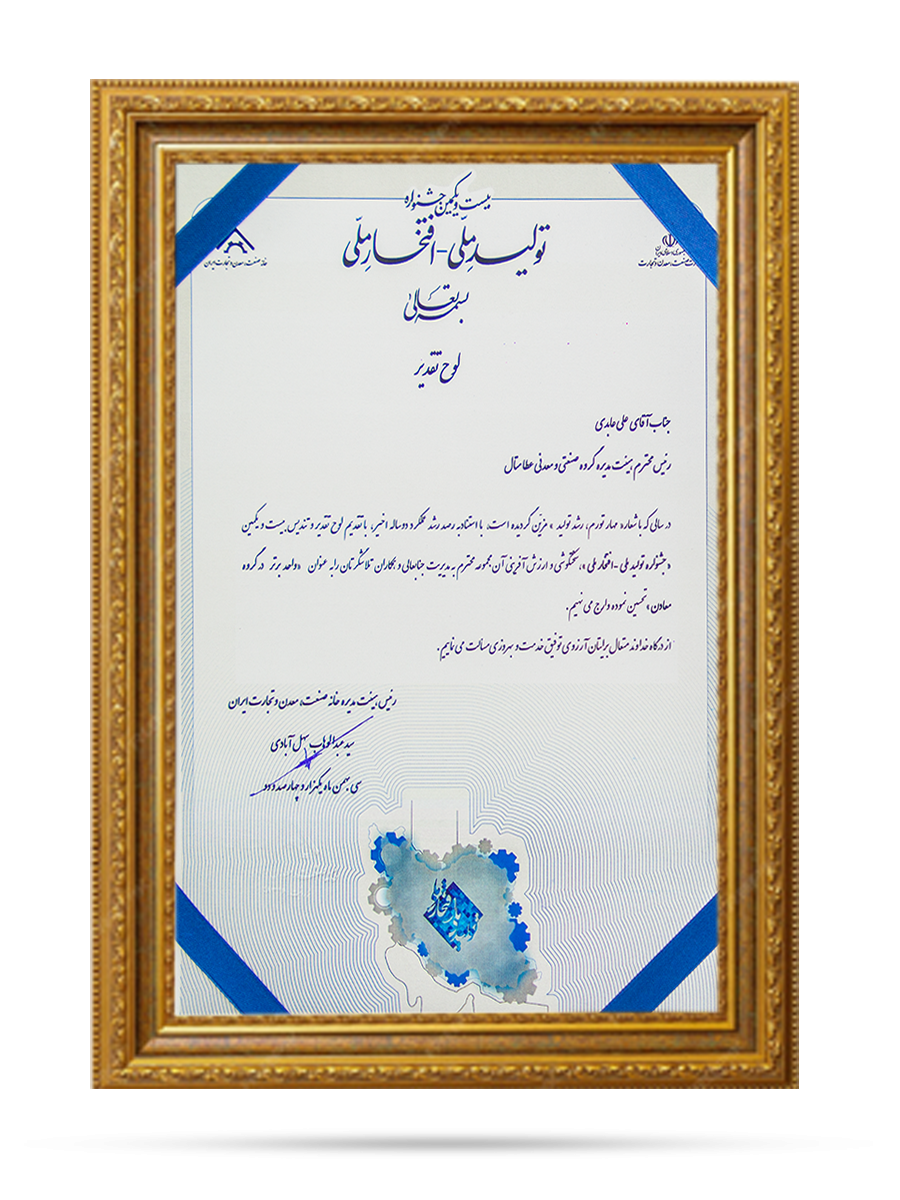 بیست و یکمین جشنواره
تولید ملّی - افتخار ملّی
جمهوری اسلامی ایران
صنعت، معدن و تجارت
خانه صنعت، معدن و تجارت ایران
بسمه تعالی
لوح تقدیر
جناب آقای علی عابدی
رئیس محترم هیئت مدیره گروه صنعتی و معدنی عطا ستال
در سالی که با شعار « مهار تورم، رشد تولید » مزین گردیده است، با استناد به رصد رشد عملکرد دو ساله اخیر، با تقدیم لوح تقدیر و تندیس بیست و یکمین
« جشنواره تولید ملی - افتخار ملی »، سختکوشی و ارزش آفرینی آن مجموعه محترم به مدیریت جنابعالی و همکاران تلاشگرتان را به عنوان « واحد برتر در گروه
معادن » تحسین نموده و ارج می نهیم.
از درگاه خداوند متعال برایتان آرزوی توفیق خدمت و بهروزی مسألت می نماییم.
رئیس هیئت مدیره خانه صنعت، معدن و تجارت ایران
سید عبدالوهاب سهل آبادی
سی بهمن ماه یکهزار و چهارصد و دو